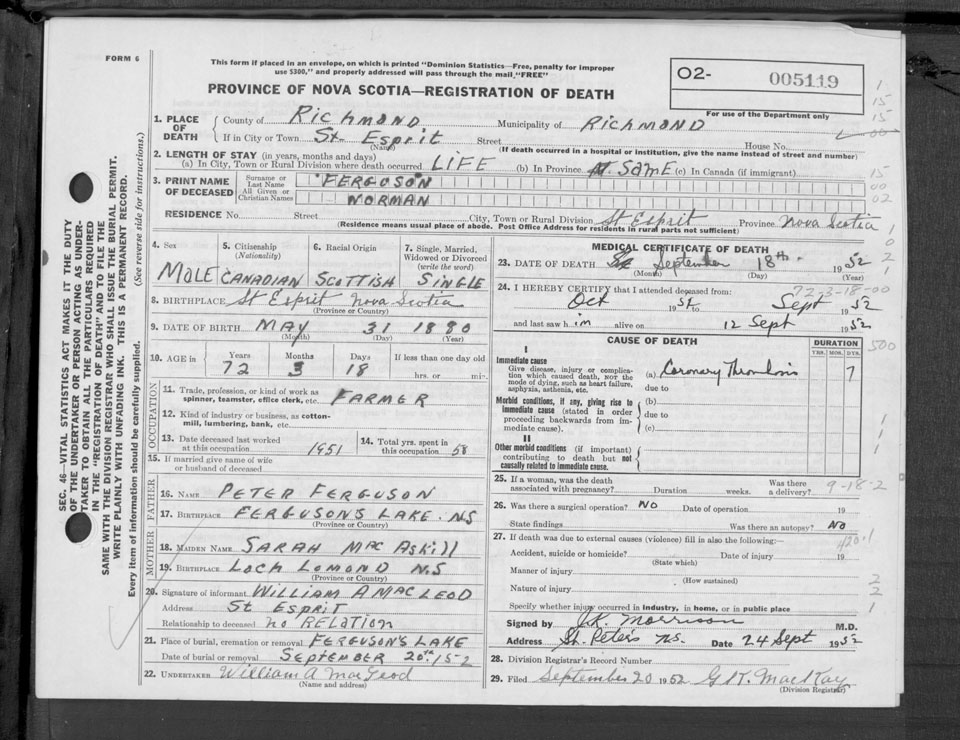 FORM 6
This form if placed in an envelope, on which is printed "Dominion Statistics—Free, penalty for improper
use $300," and properly addressed will pass through the mail, "FREE"
PROVINCE OF NOVA SCOTIA—REGISTRATION OF DEATH
O2- 005119
For use of the Department only
1. PLACE OF DEATH
County of RICHMOND Municipality of RICHMOND
If in City or Town St. Esprit Street House No.
(Name) (If death occurred in a hospital or institution, give the name instead of street and number)
2. LENGTH OF STAY (in years, months and days)
(a) In City, Town or Rural Division where death occurred LIFE (b) In Province SAME (c) In Canada (if immigrant)
3. PRINT NAME OF DECEASED
Surname or Last Name FERGUSON
All Given or Christian Names NORMAN
RESIDENCE No. Street City, Town or Rural Division St Esprit Province Nova Scotia
(Residence means usual place of abode. Post Office Address for residents in rural parts not sufficient)
4. Sex MALE
5. Citizenship (Nationality) CANADIAN
6. Racial Origin SCOTTISH
7. Single, Married, Widowed or Divorced (write the word) SINGLE
8. BIRTHPLACE St Esprit Nova Scotia
(Province or Country)
9. DATE OF BIRTH MAY 31 1880
(Month) (Day) (Year)
10. AGE in Years Months Days If less than one day old
72 3 18 hrs. or min.
OCCUPATION
11. Trade, profession, or kind of work as
spinner, teamster, office clerk, etc. FARMER
12. Kind of industry or business, as cotton-
mill, lumbering, bank, etc.
13. Date deceased last worked at this occupation 1951
14. Total yrs. spent in this occupation 58
15. If married give name of wife
or husband of deceased
FATHER
16. NAME PETER FERGUSON
17. BIRTHPLACE FERGUSON'S LAKE. NS
(Province or Country)
MOTHER
18. MAIDEN NAME SARAH MAC ASKILL
19. BIRTHPLACE LOCH LOMOND N.S
(Province or Country)
20. Signature of informant WILLIAM A MACLEOD
Address St ESPRIT
Relationship to deceased NO RELATION
21. Place of burial, cremation or removal FERGUSON'S LAKE
Date of burial or removal SEPTEMBER 20th 152
22. UNDERTAKER William A MacLeod
(Name and address)
MEDICAL CERTIFICATE OF DEATH
23. DATE OF DEATH September 18th 1952
(Month) (Day) (Year)
24. I HEREBY CERTIFY that I attended deceased from:
72-3-18-00
Oct 1951 Sept 1952
and last saw him alive on 12 Sept 1952
CAUSE OF DEATH DURATION
YRS. MOS. DYS.
I
Immediate cause
Give disease, injury or complica-
tion which caused death, not the
mode of dying, such as heart failure,
asphyxia, asthenia, etc.
(a) Coronary Thrombosis 7
due to
Morbid conditions, if any, giving rise to
immediate cause (stated in order
proceeding backwards from im-
mediate cause).
(b)
due to
(c)
II
Other morbid conditions (if important)
contributing to death but not
causally related to immediate cause.
25. If a woman, was the death Was there
associated with pregnancy? Duration weeks. a delivery?
9-18-2
26. Was there a surgical operation? NO Date of operation 19
State findings Was there an autopsy? NO
27. If death was due to external causes (violence) fill in also the following:—
420.1
Accident, suicide or homicide? Date of injury 19
(State which)
Manner of injury
(How sustained)
Nature of injury
Specify whether injury occurred in industry, in home, or in public place
Signed by Morrison M.D.
Address St. Peter's N.S. Date 24 Sept 1952
28. Division Registrar's Record Number
29. Filed September 20 1952 MacKay
(Division Registrar)
SEC. 46—VITAL STATISTICS ACT MAKES IT THE DUTY
OF THE UNDERTAKER OR PERSON ACTING AS UNDER-
TAKER TO OBTAIN ALL THE PARTICULARS REQUIRED
IN THE "REGISTRATION OF DEATH" AND TO FILE THE
SAME WITH THE DIVISION REGISTRAR WHO SHALL ISSUE THE BURIAL PERMIT.
WRITE PLAINLY WITH UNFADING INK. THIS IS A PERMANENT RECORD.
Every item of information should be carefully supplied. (See reverse side for instructions.)
1
15
15
00
15
00
02
1
0
2
1
500
1
1
1
2
2
1